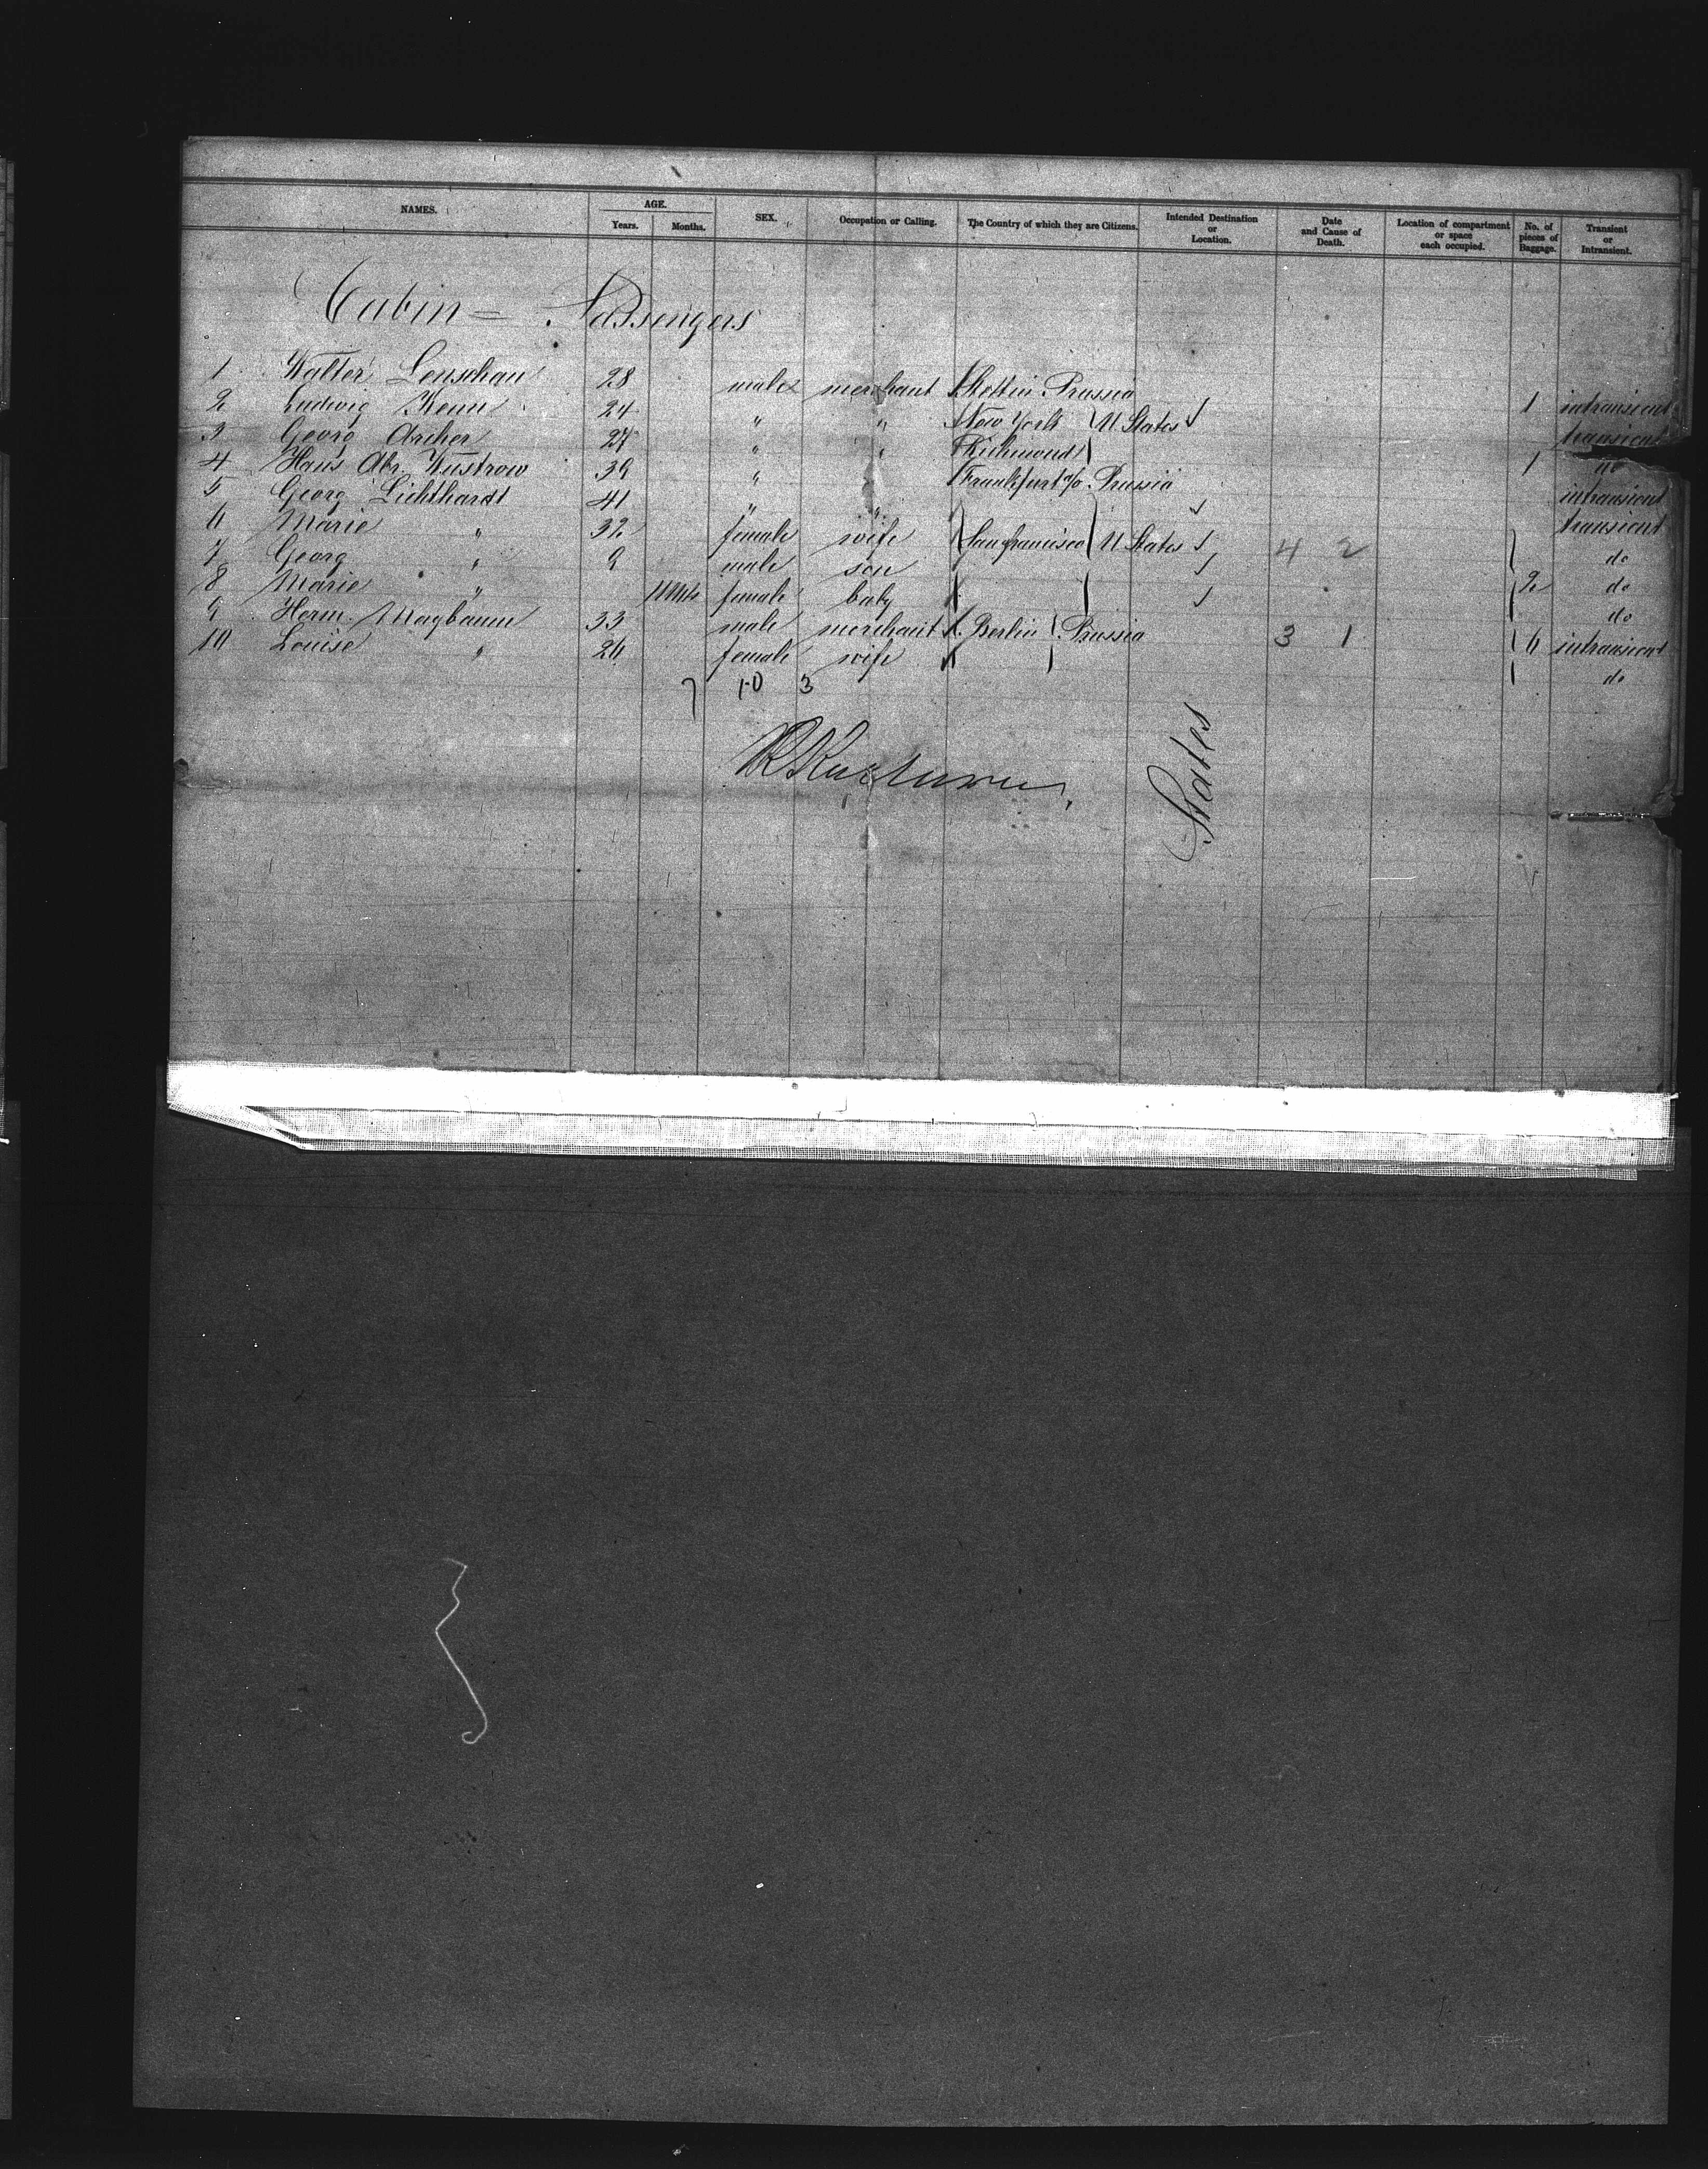 NAMES. AGE. Years. Months. SEX. Occupation or Calling. The Country of which they are Citizens. Intended Destination or Location. Date and Cause of Death. Location of compartment or space each occupied. No. of pieces of Baggage. Transient or Intransient.
Cabin = Passengers
1 Walter Lenschau 28 male merchant Stettin Prussia 1 intransient
2 Ludwig 24 " " New York U States transient
3 Georg Archer 27 " " Richmond do
4 Hans Abr. Wustrow 39 " Frankfurt a/o Prussia 1 intransient
5 Georg Lichthardt 41 " " transient
6 Marie " 32 female wife San francisco U States 4 2 do
7 Georg " 9 male son do
8 Marie " 11 Mts female baby 2 do
9 Herm. Magbaum 33 male merchant Berlin Prussia 3 1 6 intransient
10 Louise " 26 female wife do
7 10 3
States